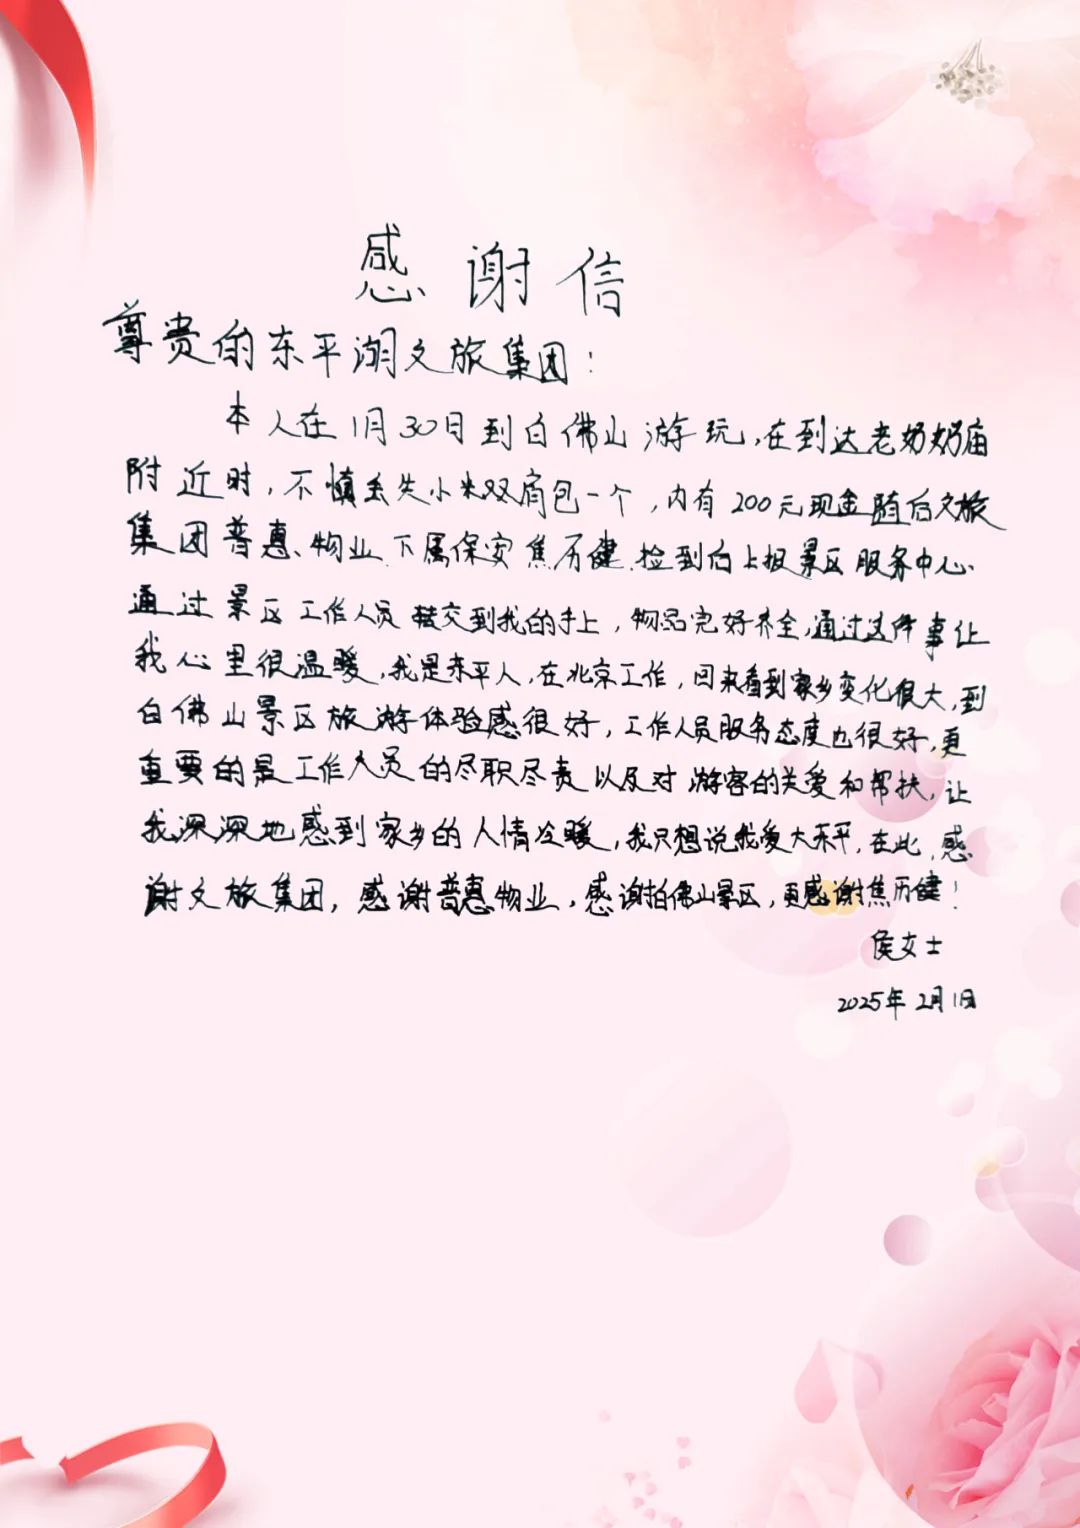 感谢信
尊贵的东平湖文旅集团：
本人在1月30日到白佛山游玩，在到达老奶奶庙
附近时，不慎丢失小米双肩包一个，内有200元现金随后文旅
集团普惠、物业下属保安焦历健捡到后上报景区服务中心
通过景区工作人员转交到我的手上，物品完好齐全，通过这件事让
我心里很温暖，我是东平人，在北京工作，回来看到家乡变化很大，到
白佛山景区旅游体验感很好，工作人员服务态度也很好，更
重要的是工作人员的尽职尽责以及对游客的关爱和帮扶，让
我深深地感到家乡的人情冷暖，我只想说我爱大东平，在此，感
谢文旅集团，感谢普惠物业，感谢柏佛山景区，更感谢焦历健！
侯女士
2025年2月1日